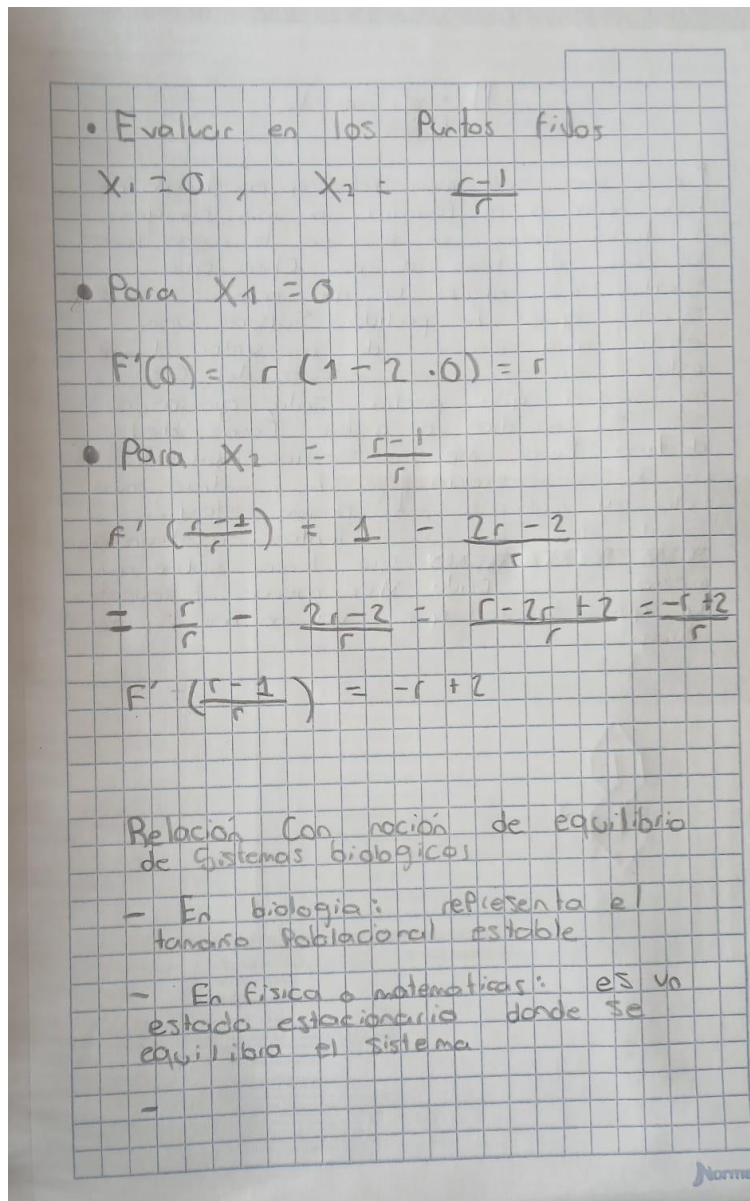 • Evaluar en los Puntos fijos
X₁ = 0 , X₂ = (r-1)/r
• Para X₁ = 0
F'(0) = r (1 - 2 · 0) = r
• Para X₂ = (r-1)/r
F' ((r-1)/r) = 1 - (2r-2)/r
= r/r - (2r-2)/r = (r-2r+2)/r = (-r+2)/r
F' ((r-1)/r) = -r + 2
Relación Con noción de equilibrio
de Sistemas biologicos
- En biologia: representa el
tamaño Poblacional estable
- En física o matematicas: es un
estado estacionario donde se
equilibra el sistema
-
Norma